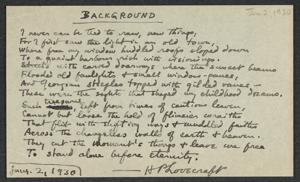 BACKGROUND
Jan 2, 1930
I never can be tied to raw, new things,
For I first saw the light in an old town,
Where from my window huddled roofs sloped down
To a quaint harbour rich with visionings.
Streets with carved doorways where the sunset beams
Flooded old fanlights & small window-panes,
And Georgian steeples topped with gilded vanes –
These were the sights that shaped my childhood dreams.
Such treasures, left from times of cautious leaven,
Cannot but loose the hold of flimsier wraiths
That flit with shifting ways & muddled faiths
Across the changeless walls of earth & heaven.
They cut the moment's thongs & leave me free
To stand alone before eternity.
Jany. 2, 1930
HPLovecraft